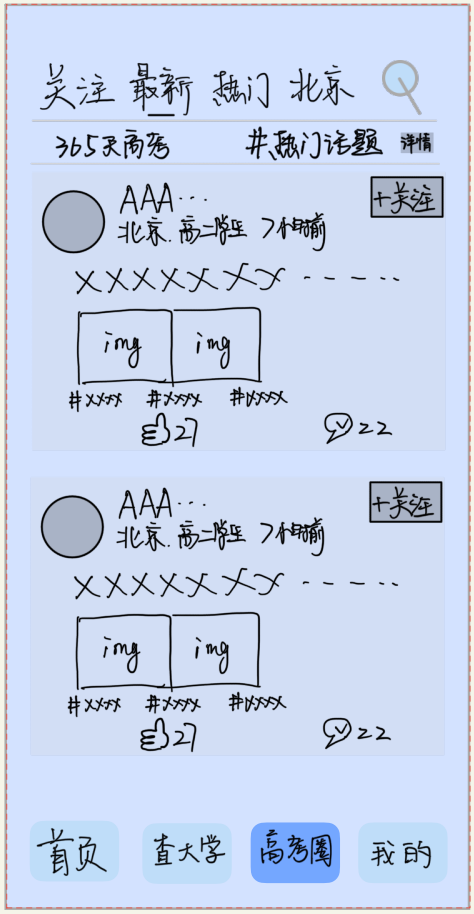 关注 最新 热门 北京
365天高考 #热门话题 详情
AAA... +关注
北京.高二学生 7小时前
XXXXXXXX -----
img img
#xxxx #xxxx #xxxx
27 22
AAA... +关注
北京.高二学生 7小时前
XXXXXXXX -----
img img
#xxxx #xxxx #xxxx
27 22
首页 查大学 高考圈 我的